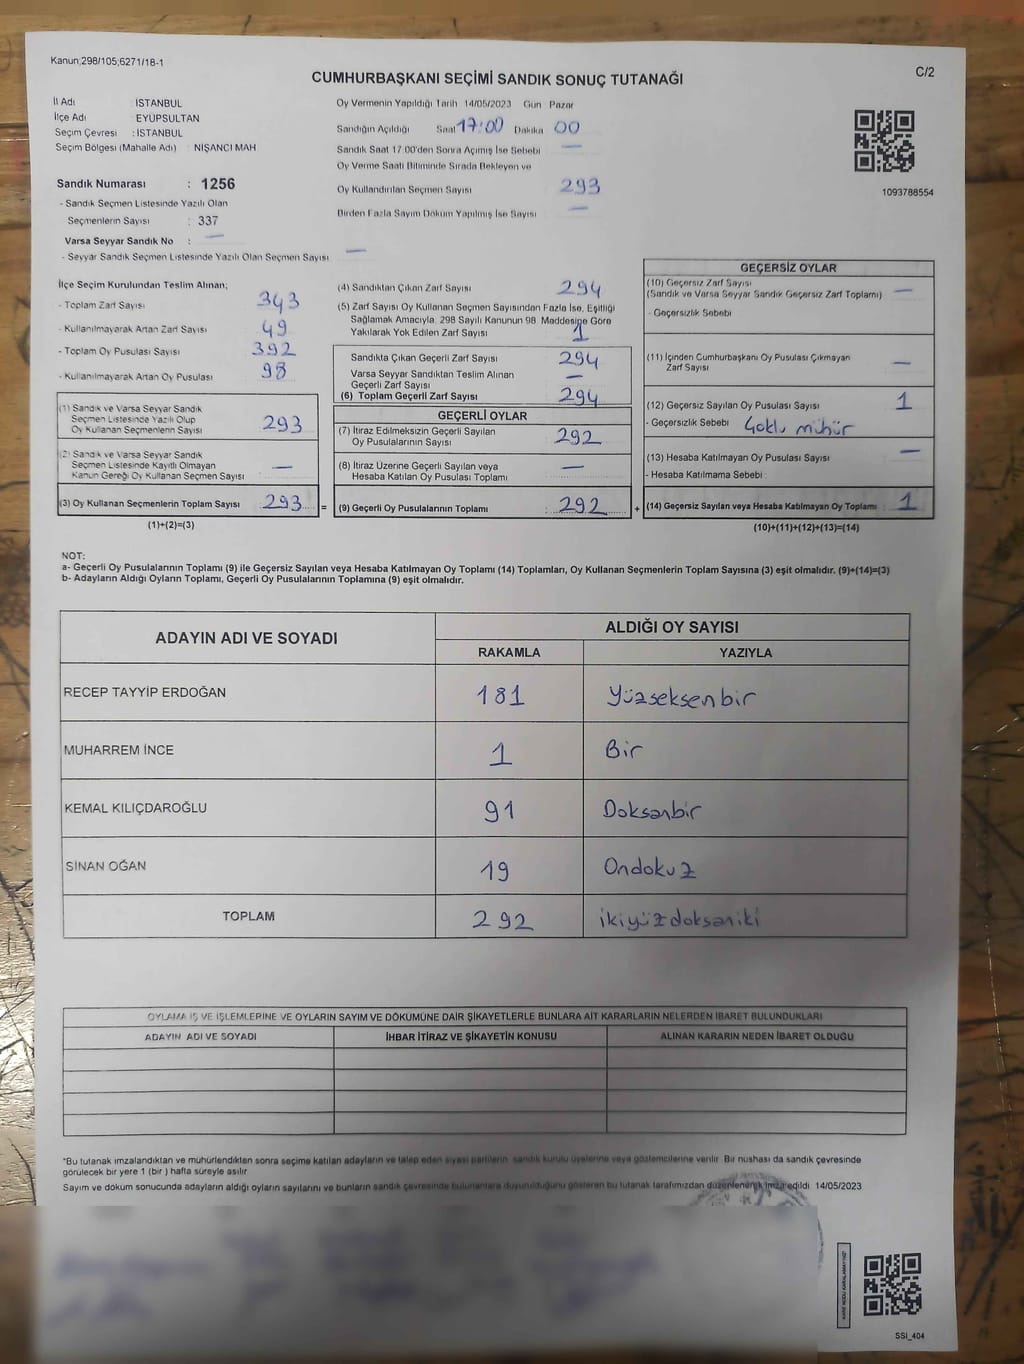 Kanun;298/105;6271/18-1
C/2
CUMHURBAŞKANI SEÇİMİ SANDIK SONUÇ TUTANAĞI
İl Adı : İSTANBUL
İlçe Adı : EYÜPSULTAN
Seçim Çevresi : İSTANBUL
Seçim Bölgesi (Mahalle Adı) : NİŞANCI MAH
Sandık Numarası : 1256
- Sandık Seçmen Listesinde Yazılı Olan
Seçmenlerin Sayısı : 337
Varsa Seyyar Sandık No : —
- Seyyar Sandık Seçmen Listesinde Yazılı Olan Seçmen Sayısı —
Oy Vermenin Yapıldığı Tarih 14/05/2023 Gün Pazar
Sandığın Açıldığı Saat 17:00 Dakika 00
Sandık Saat 17:00'den Sonra Açımış İse Sebebi —
Oy Verme Saati Bitiminde Sırada Bekleyen ve
Oy Kullandırılan Seçmen Sayısı 293
Birden Fazla Sayım Döküm Yapılmış İse Sayısı —
1093788554
İlçe Seçim Kurulundan Teslim Alınan;
- Toplam Zarf Sayısı 343
- Kullanılmayarak Artan Zarf Sayısı 49
- Toplam Oy Pusulası Sayısı 392
- Kullanılmayarak Artan Oy Pusulası 98
(1) Sandık ve Varsa Seyyar Sandık
Seçmen Listesinde Yazılı Olup
Oy Kullanan Seçmenlerin Sayısı 293
(2) Sandık ve Varsa Seyyar Sandık
Seçmen Listesinde Kayıtlı Olmayan
Kanun Gereği Oy Kullanan Seçmen Sayısı —
(3) Oy Kullanan Seçmenlerin Toplam Sayısı 293 =
(1)+(2)=(3)
(4) Sandıktan Çıkan Zarf Sayısı 294
(5) Zarf Sayısı Oy Kullanan Seçmen Sayısından Fazla İse, Eşitliği
Sağlamak Amacıyla, 298 Sayılı Kanunun 98. Maddesine Göre
Yakılarak Yok Edilen Zarf Sayısı 1
Sandıkta Çıkan Geçerli Zarf Sayısı 294
Varsa Seyyar Sandıktan Teslim Alınan
Geçerli Zarf Sayısı —
(6) Toplam Geçerli Zarf Sayısı 294
GEÇERLİ OYLAR
(7) İtiraz Edilmeksizin Geçerli Sayılan
Oy Pusulalarının Sayısı 292
(8) İtiraz Üzerine Geçerli Sayılan veya
Hesaba Katılan Oy Pusulası Toplamı —
(9) Geçerli Oy Pusulalarının Toplamı : 292 +
GEÇERSİZ OYLAR
(10) Geçersiz Zarf Sayısı
(Sandık ve Varsa Seyyar Sandık Geçersiz Zarf Toplamı) —
- Geçersizlik Sebebi
(11) İçinden Cumhurbaşkanı Oy Pusulası Çıkmayan
Zarf Sayısı —
(12) Geçersiz Sayılan Oy Pusulası Sayısı 1
- Geçersizlik Sebebi Çoklu mühür
(13) Hesaba Katılmayan Oy Pusulası Sayısı —
- Hesaba Katılmama Sebebi
(14) Geçersiz Sayılan veya Hesaba Katılmayan Oy Toplamı 1
(10)+(11)+(12)+(13)=(14)
NOT:
a- Geçerli Oy Pusulalarının Toplamı (9) ile Geçersiz Sayılan veya Hesaba Katılmayan Oy Toplamı (14) Toplamları, Oy Kullanan Seçmenlerin Toplam Sayısına (3) eşit olmalıdır. (9)+(14)=(3)
b- Adayların Aldığı Oyların Toplamı, Geçerli Oy Pusulalarının Toplamına (9) eşit olmalıdır.
ADAYIN ADI VE SOYADI
ALDIĞI OY SAYISI
RAKAMLA YAZIYLA
RECEP TAYYİP ERDOĞAN 181 Yüzseksenbir
MUHARREM İNCE 1 Bir
KEMAL KILIÇDAROĞLU 91 Doksanbir
SİNAN OĞAN 19 Ondokuz
TOPLAM 292 ikiyüzdoksaniki
OYLAMA İŞ VE İŞLEMLERİNE VE OYLARIN SAYIM VE DÖKÜMÜNE DAİR ŞİKAYETLERLE BUNLARA AİT KARARLARIN NELERDEN İBARET BULUNDUKLARI
ADAYIN ADI VE SOYADI İHBAR İTİRAZ VE ŞİKAYETİN KONUSU ALINAN KARARIN NEDEN İBARET OLDUĞU
*Bu tutanak imzalandıktan ve mühürlendikten sonra seçime katılan adayların ve talep eden siyasi partilerin sandık kurulu üyelerine veya gözlemcilerine verilir. Bir nüshası da sandık çevresinde
görülecek bir yere 1 (bir) hafta süreyle asılır.
Sayım ve döküm sonucunda adayların aldığı oyların sayılarını ve bunların sandık çevresinde bulunanlara duyurulduğunu gösteren bu tutanak tarafımızdan düzenlenerek imza edildi 14/05/2023
KARE KODU KARALAMAYINIZ!
SSI_404